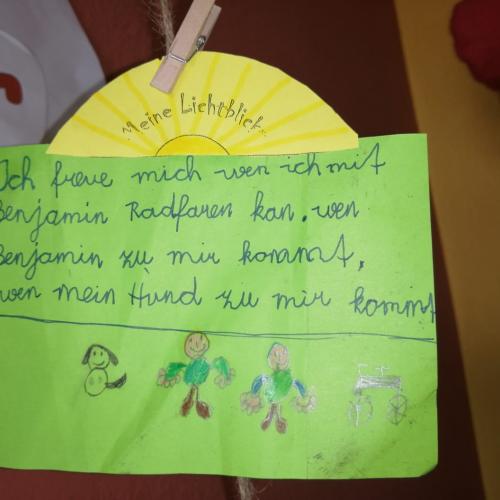 Meine Lichtblicke
Ich freue mich wen ich mit
Benjamin Radfaren kan. wen
Benjamin zu mir kommt,
wen mein Hund zu mir kommt